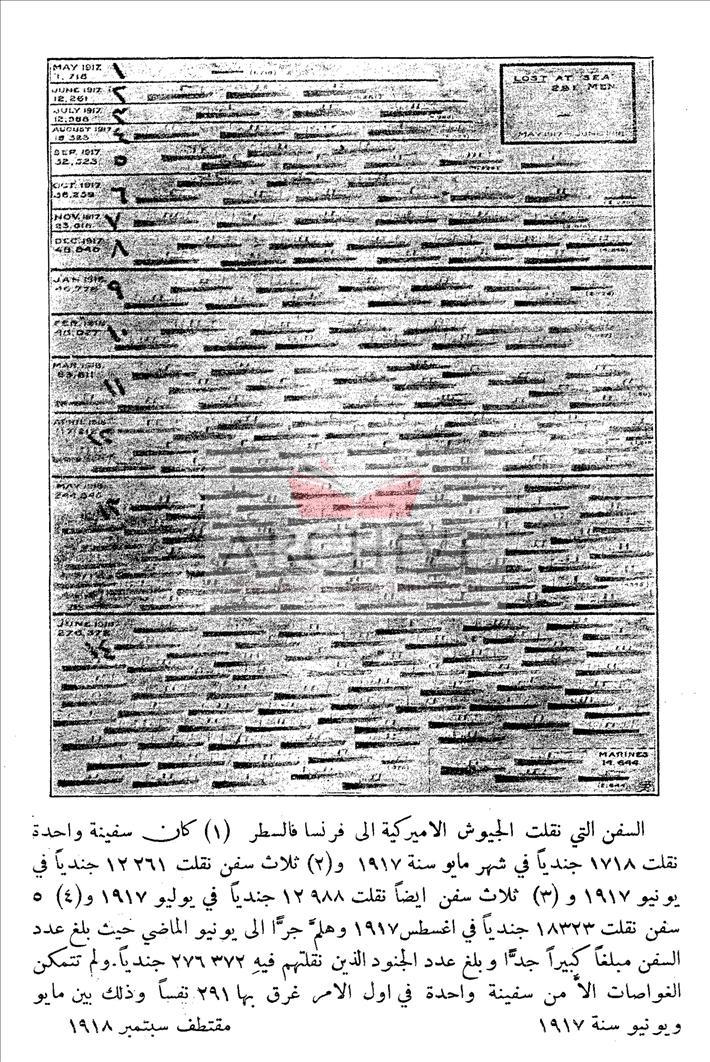 MAY 1917.
1,718
١
LOST AT SEA
291 MEN
MAY 1917 - JUNE 1918
JUNE 1917
12,261
٢
JULY 1917
12,988
٣
AUGUST 1917
18,323
٤
SEP. 1917
32,523
٥
OCT. 1917
٦
NOV. 1917
23,016
٧
DEC. 1917
48,840
٨
JAN. 1918
46,776
٩
FEB. 1918
48,027
١٠
MAR. 1918
83,811
١١
APRIL 1918
١٢
MAY 1918
١٣
JUNE 1918
276,372
١٤
MARINES
14,644
ARCHIVE
السفن التي نقلت الجيوش الاميركية الى فرنسا فالسطر (١) كان سفينة واحدة
نقلت ١٧١٨ جندياً في شهر مايو سنة ١٩١٧ و(٢) ثلاث سفن نقلت ١٢٢٦١ جندياً في
يونيو ١٩١٧ و (٣) ثلاث سفن ايضاً نقلت ١٢٩٨٨ جندياً في يوليو ١٩١٧ و(٤) ٥
سفن نقلت ١٨٣٢٣ جندياً في اغسطس ١٩١٧ وهلمَّ جرًّا الى يونيو الماضي حيث بلغ عدد
السفن مبلغاً كبيراً جدًّا وبلغ عدد الجنود الذين نقلتهم فيهِ ٢٧٦٣٧٢ جندياً. ولم تتمكن
الغواصات الاَّ من سفينة واحدة في اول الامر غرق بها ٢٩١ نفساً وذلك بين مايو
ويونيو سنة ١٩١٧ مقتطف سبتمبر ١٩١٨